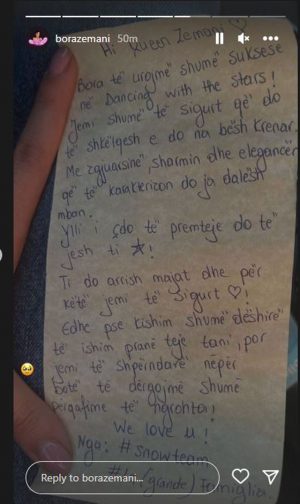 borazemani 50m
Hi Kueen Zemani ♡
Bora të urojmë shumë suksese
në Dancing with the stars!
Jemi shumë të sigurt që do
të shkëlqesh e do na bësh krenar
Me zgjuarsinë, sharmin dhe elegancën
që të karakterizon do ja dalësh
mban.
Ylli i çdo të premteje do të
jesh ti ☆!
Ti do arrish majat dhe për
këtë jemi të sigurt ♡!
Edhe pse kishim shumë dëshirë
të ishim pranë teje tani, por
jemi të shpërndarë nëpër
botë të dërgojmë shumë
përqafime të ngrohta!
We love u!
Nga: #snowteam
(grande) Famiglia.
Reply to borazemani...